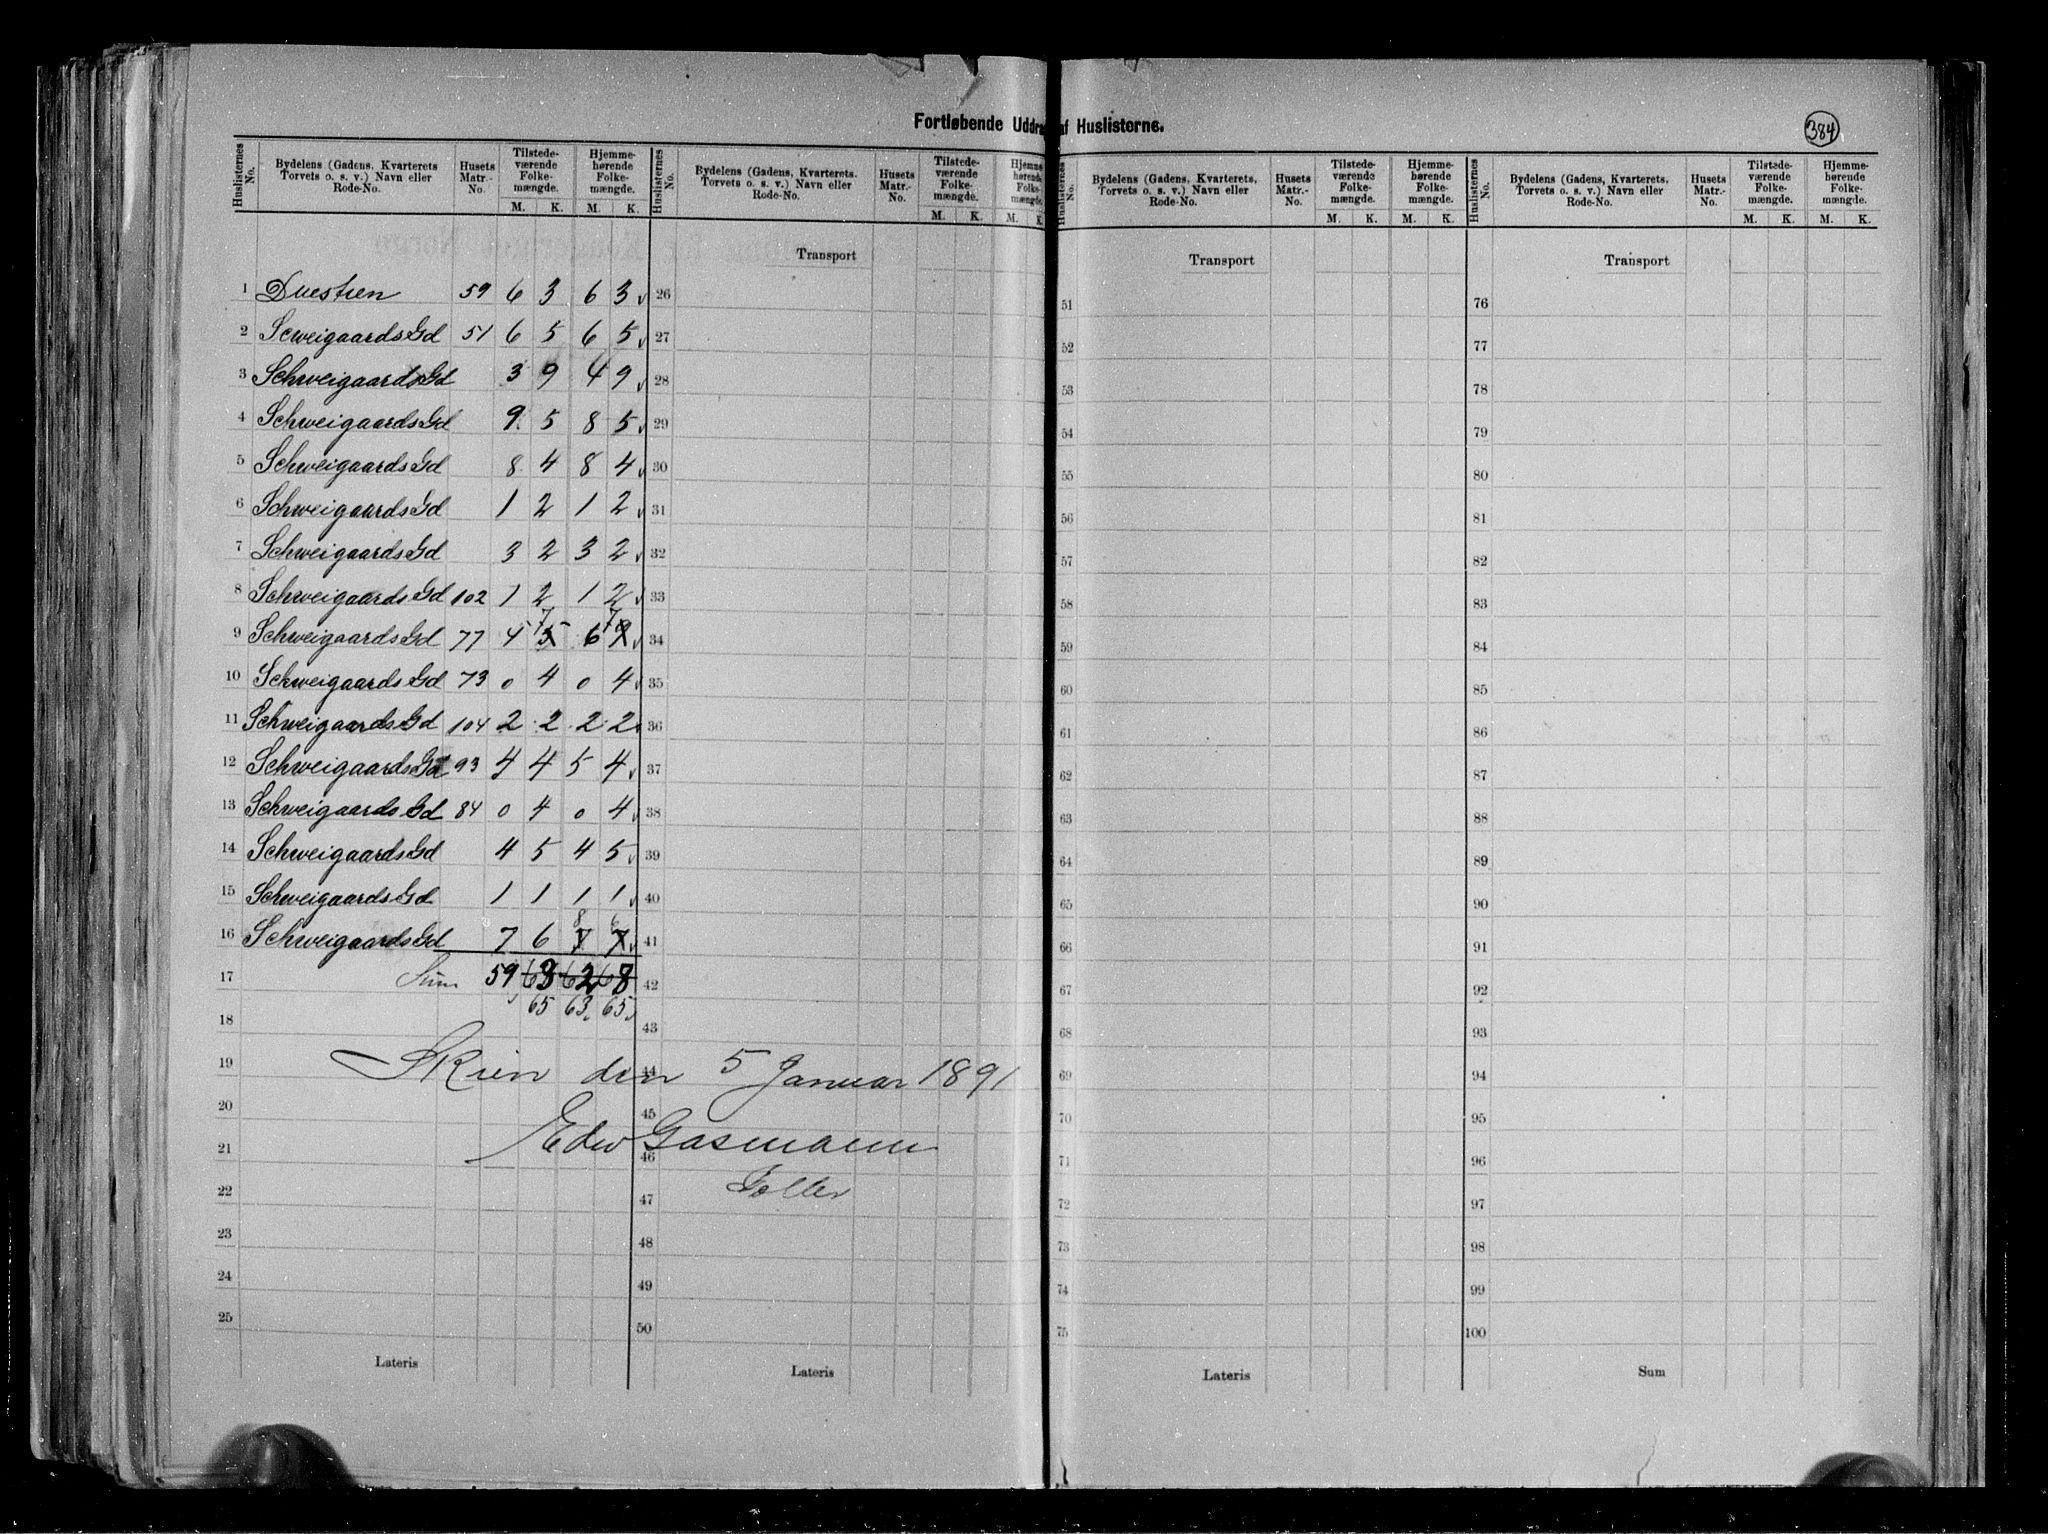 Fortløbende Uddrag af Huslisterne.
384
Huslisternes No. Bydelens (Gadens, Kvarterets Torvets o. s. v.) Navn eller Rode-No. Husets Matr.-No. Tilstedeværende Folkemængde. M. K. Hjemmehørende Folkemængde. M. K.
Huslisternes No. Bydelens (Gadens, Kvarterets, Torvets o. s. v.) Navn eller Rode-No. Husets Matr.-No. Tilstedeværende Folkemængde. M. K. Hjemmehørende Folkemængde. M. K.
Huslisternes No. Bydelens (Gadens, Kvarterets, Torvets o. s. v.) Navn eller Rode-No. Husets Matr.-No. Tilstedeværende Folkemængde. M. K. Hjemmehørende Folkemængde. M. K.
Huslisternes No. Bydelens (Gadens, Kvarterets, Torvets o. s. v.) Navn eller Rode-No. Husets Matr.-No. Tilstedeværende Folkemængde. M. K. Hjemmehørende Folkemængde. M. K.
Transport Transport Transport
1 Duestien 59 6 3 6 3 26 51 76
2 Scweigaards Gd 51 6 5 6 5 27 52 77
3 Schweigaards Gd 3 9 4 9 28 53 78
4 Schweigaards Gd 9 5 8 5 29 54 79
5 Schweigaards Gd 8 4 8 4 30 55 80
6 Schweigaards Gd 1 2 1 2 31 56 81
7 Schweigaards Gd 3 2 3 2 32 57 82
8 Schweigaards Gd 102 1 2 1 2 33 58 83
9 Schweigaards Gd 77 4 7 6 7 34 59 84
10 Schweigaards Gd 73 0 4 0 4 35 60 85
11 Schweigaards Gd 104 2 2 2 2 36 61 86
12 Schweigaards Gd 93 4 4 5 4 37 62 87
13 Schweigaards Gd 84 0 4 0 4 38 63 88
14 Schweigaards Gd 4 5 4 5 39 64 89
15 Schweigaards Gd 1 1 1 1 40 65 90
8 6
16 Schweigaards Gd 7 6 7 7 41 66 91
17 Sum 59 63 62 68 42 67 92
65 63 65
18 43 68 93
19 Skien den 5 Januar 1891 44 69 94
20 45 70 95
21 Edw Gasmann 46 71 96
22 Tæller 47 72 97
23 48 73 98
24 49 74 99
25 50 75 100
Lateris Lateris Lateris Sum